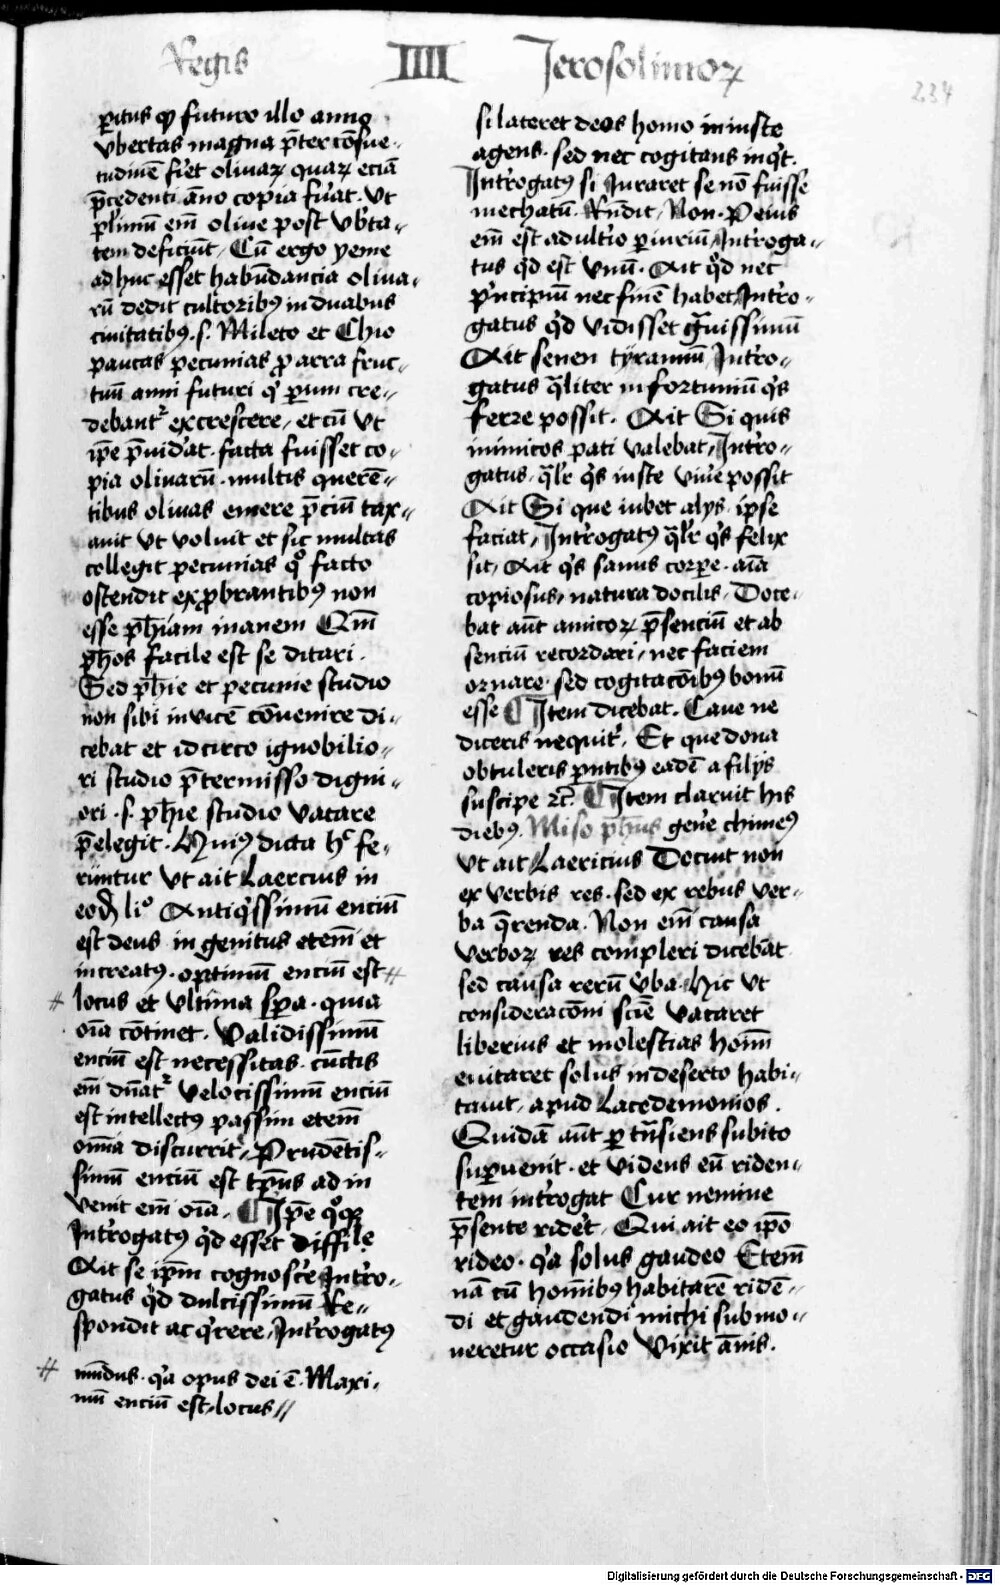 Regis IIII Jerosolimoꝝ
234
ꝑitus ꝙ futuro illo anno
vbertas magna p̄ter cōsue⸗
tudinē fiet olivaꝝ quaꝝ eciā
p̄cedenti āno copia fu̓at. Ut
pl̓imū em̄ oliue post vbta⸗
tem deficiūt, Cū ergo yeme
ad huc esset habūdancia oliua⸗
rū dedit cultoribꝰ in duabus
ciuitatibꝰ .s. Mileto et Chio
paucas pecunias ꝓ arra fruc⸗
tuū anni futuri qͥ ꝑum cre⸗
debantᷣ excrescere, et cū vt
ip̄e p̄uid̓at. facta fuisset co⸗
pia olivarū. multis querē⸗
tibus olivas emere p̄ciū tax⸗
auit vt voluit et sic multas
collegit pecunias qͦ facto
ostendit exꝓbrantibꝰ non
esse ph̄iam inanem Qm̄
ph̄os facile est se ditari.
Sed ph̄ie et pecunie studio
non sibi invicē cōuenire di⸗
cebat et idcirco ignobilio⸗
ri studio p̄termisso digni⸗
ori .s. ph̄ie studio vacare
p̄elegit. Huiꝰ dicta hͨ fe⸗
runtur vt ait Laercius in
eod̄ liͦ Antiqͥssimū enciū
est deus in genitus etem̄ et
increatꝰ. optimum enciū est #
# locus et vltima spa. quia
oīa cōtinet. Validissimū
enciū est necessitas. cūctis
em̄ dn̄atᷣ Velocissimū enciū
est intellectꝰ passim etem̄
omnia discurrit, Prudētis⸗
simū enciū est tp̄us ad in
venit em̄ oīa. ¶ Ip̄e qͦqꝫ
Introgatꝰ qͥd esset difficile
Ait se ip̄m cognosc̓e Intro⸗
gatus qͥd dulcissimū Re⸗
spondit acqͥrere, Introgatꝰ
# mūdus. qͥa opus dei ē. Maxi⸗
mū enciū est, locus //
si lateret deos homo iniuste
agens. sed nec cogitans inqͥt.
Introgatꝰ si Iuraret se nō fuisse
mechatū. Rn̄dit, Non. Peius
em̄ est adult̓io ꝑiuriū, Introga⸗
tus qͥd est vnū. Ait qͦd nec
pͥncipiū nec finē habet, Intro⸗
gatus qͥd vidisset gͣuissimū
Ait senen tyrannū, Intro⸗
gatus qͣliter infortuniū qͥs
ferre possit. Ait Si quis
inimicos pati valebat, Intro⸗
gatus, qͣlr̄ qͥs iuste viu̓e possit
Ait Si que iubet alys. ipse
faciat, Introgatꝰ qͣlr̄ qͥs felix
sit, Ait qͥs sanus corꝑe. aīa
copiosus, natura docilis, Doce⸗
bat aūt amicoꝝ p̄senciū et ab
senciū recordari, nec faciem
ornare. sed cogitacōibꝰ bonū
esse ¶ Item dicebat. Caue ne
diceris nequit̓. Et que dona
obtuleris pn̄tibꝰ eadē a filys
suscipe ⁊c̄. ¶ Item claruit his
diebꝰ. Miso ph̄us gen̓e chineꝰ
vt ait Laericius Docuit non
ex verbis res. sed ex rebus ver⸗
ba qͣrenda. Non em̄ causa
verboꝝ res compleri dicebāt
sed causa rerū v̓ba. Hic vt
consideracōni sciē vacaret
liberius et molestias hoīm
euitaret solus in deserto habi⸗
tauit, apud Lacedemonios.
Quidā aūt ꝑ tn̄siens subito
suꝑuenit. et videns eū riden⸗
tem introgat Cur nemine
p̄sente rid̓et. Qui ait eo ip̄o
rideo. qͥa solus gaudeo Etem̄
nā cū hoīibꝰ habitarē ridē⸗
di et gaudendi michi submo⸗
ueretur occasio Vixit ānis.
Digitalisierung gefördert durch die Deutsche Forschungsgemeinschaft - DFG